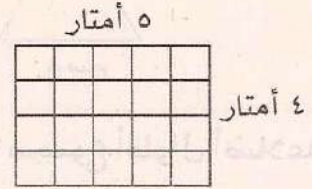 ٥ أمتار
٤ أمتار